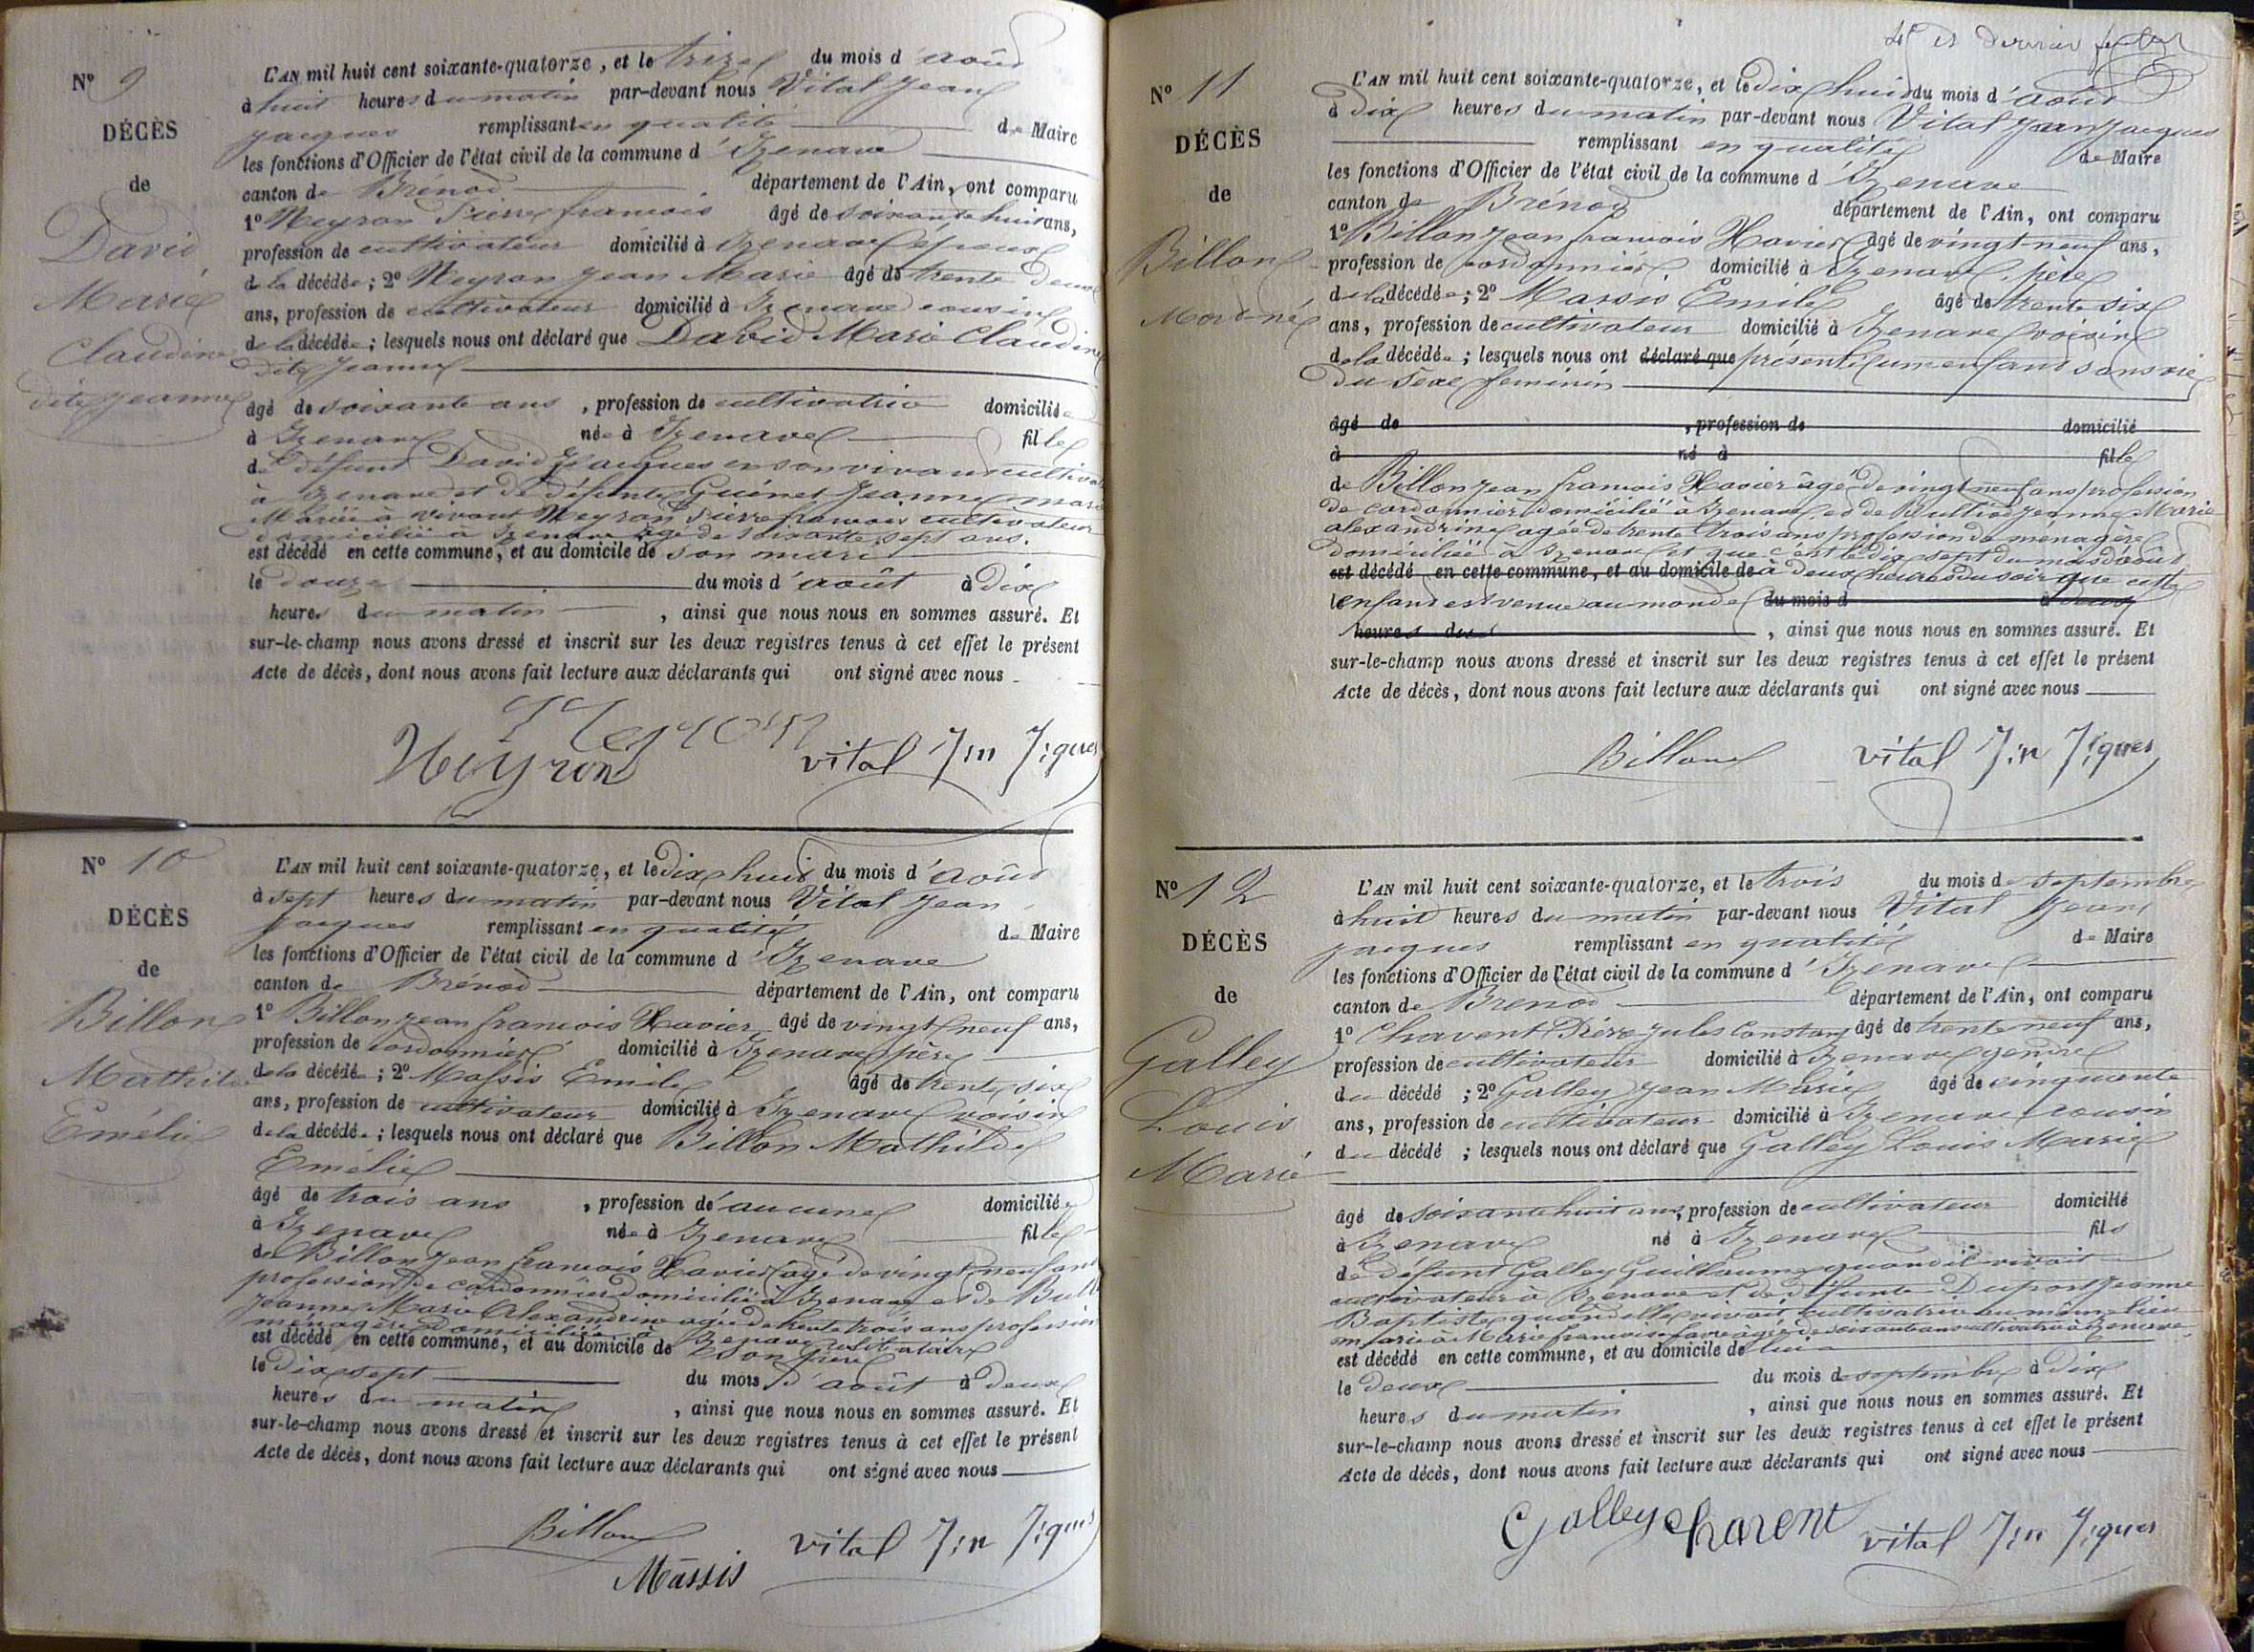 Nº 9
DÉCÈS
de
David
Marie
Claudine
dite Jeanne
L'AN mil huit cent soixante-quatorze, et le treize du mois d'août
à huit heures du matin par-devant nous Vital Jean
Jacques remplissant en qualité de Maire
les fonctions d'Officier de l'état civil de la commune d'Izenave
canton de Brénod département de l'Ain, ont comparu
1º Neyron Pierre françois âgé de soixante huit ans,
profession de cultivateur domicilié à Izenave époux
de la décédée; 2º Neyron Jean Marie âgé de trente deux
ans, profession de cultivateur domicilié à Izenave cousin
de la décédée; lesquels nous ont déclaré que David Marie Claudine
dite Jeanne
âgé de soixante ans, profession de cultivatrice domiciliée
à Izenave née à Izenave fille
de défunt David Jacques en son vivant cultivateur
à Izenave et de défunte Guinet Jeanne Marie
Mariée à vivant Neyron Pierre francois cultivateur
domicilié à Izenave âgé de soixante sept ans.
est décédé en cette commune, et au domicile de son mari
le douze du mois d'août à dix
heures du matin, ainsi que nous nous en sommes assuré. Et
sur-le-champ nous avons dressé et inscrit sur les deux registres tenus à cet effet le présent
Acte de décès, dont nous avons fait lecture aux déclarants qui ont signé avec nous
Neyron
Neyron vital J:n J:ques
Nº 10
DÉCÈS
de
Billon
Mathilde
Emélie
L'AN mil huit cent soixante-quatorze, et le dix huit du mois d'août
à sept heures du matin par-devant nous Vital Jean
Jacques remplissant en qualité de Maire
les fonctions d'Officier de l'état civil de la commune d'Izenave
canton de Brénod département de l'Ain, ont comparu
1º Billon Jean francois Xavier âgé de vingt neuf ans,
profession de cordonnier domicilié à Izenave père
de la décédée; 2º Massis Emile âgé de trente six
ans, profession de cultivateur domicilié à Izenave voisin
de la décédée; lesquels nous ont déclaré que Billon Mathilde
Emélie
âgé de trois ans, profession d'aucune domiciliée
à Izenave née à Izenave fille
de Billon Jean francois Xavier âgé de vingt neuf ans
profession de cordonnier domicilié à Izenave et de
Jeanne Marie Alexandrine agée de trente trois ans profession
ménagère domiciliée à Izenave
est décédé en cette commune, et au domicile de son père
le dix sept du mois d'août à deux
heures du matin, ainsi que nous nous en sommes assuré. Et
sur-le-champ nous avons dressé et inscrit sur les deux registres tenus à cet effet le présent
Acte de décès, dont nous avons fait lecture aux déclarants qui ont signé avec nous
Billon vital J:n J:ques
Massis
4e et dernier feuillet
Nº 11
DÉCÈS
de
Billon
Mort-né
L'AN mil huit cent soixante-quatorze, et le dix huit du mois d'août
à dix heures du matin par-devant nous Vital Jean Jacques
remplissant en qualité de Maire
les fonctions d'Officier de l'état civil de la commune d'Izenave
canton de Brénod département de l'Ain, ont comparu
1º Billon Jean francois Xavier âgé de vingt neuf ans,
profession de cordonnier domicilié à Izenave père
de la décédée; 2º Massis Emile âgé de trente six
ans, profession de cultivateur domicilié à Izenave voisin
de la décédée; lesquels nous ont déclaré que présenté un enfant sans vie
du sexe féminin
âgé de, profession de domicilié
à né à fille
de Billon Jean francois Xavier âgé de vingt neuf ans profession
de cordonnier domicilié à Izenave et de Jeanne Marie
alexandrine agée de trente trois ans profession de ménagère
domiciliée à Izenave et que c'est le dix sept du mois d'août
est décédé en cette commune, et au domicile de à deux heures du soir que cette
le enfant est venue au monde du mois d à deux
heures du, ainsi que nous nous en sommes assuré. Et
sur-le-champ nous avons dressé et inscrit sur les deux registres tenus à cet effet le présent
Acte de décès, dont nous avons fait lecture aux déclarants qui ont signé avec nous
Billon vital J:n J:ques
Nº 12
DÉCÈS
de
Galley
Louis
Marie
L'AN mil huit cent soixante-quatorze, et le trois du mois de septembre
à huit heures du matin par-devant nous Vital Jean
Jacques remplissant en qualité de Maire
les fonctions d'Officier de l'état civil de la commune d'Izenave
canton de Brenod département de l'Ain, ont comparu
1º Chavent Piere Jules Constant âgé de trente neuf ans,
profession de cultivateur domicilié à Izenave gendre
du décédé; 2º Galley Jean Marie âgé de cinquante
ans, profession de cultivateur domicilié à Izenave cousin
du décédé; lesquels nous ont déclaré que Galley Louis Marie
âgé de soixante huit ans, profession de cultivateur domicilié
à Izenave né à Izenave fils
de défunt Galley Guillaume quand il vivait
cultivateur à Izenave et de défunte Dupont Jeanne
Baptiste quand elle vivait cultivatrice au même lieu
marié à Marie francoise favre âgée de soixante ans cultivatrice à Izenave
est décédé en cette commune, et au domicile de lui
le deux du mois de septembre à dix
heures du matin, ainsi que nous nous en sommes assuré. Et
sur-le-champ nous avons dressé et inscrit sur les deux registres tenus à cet effet le présent
Acte de décès, dont nous avons fait lecture aux déclarants qui ont signé avec nous
Galley Chavent vital J:n J:ques